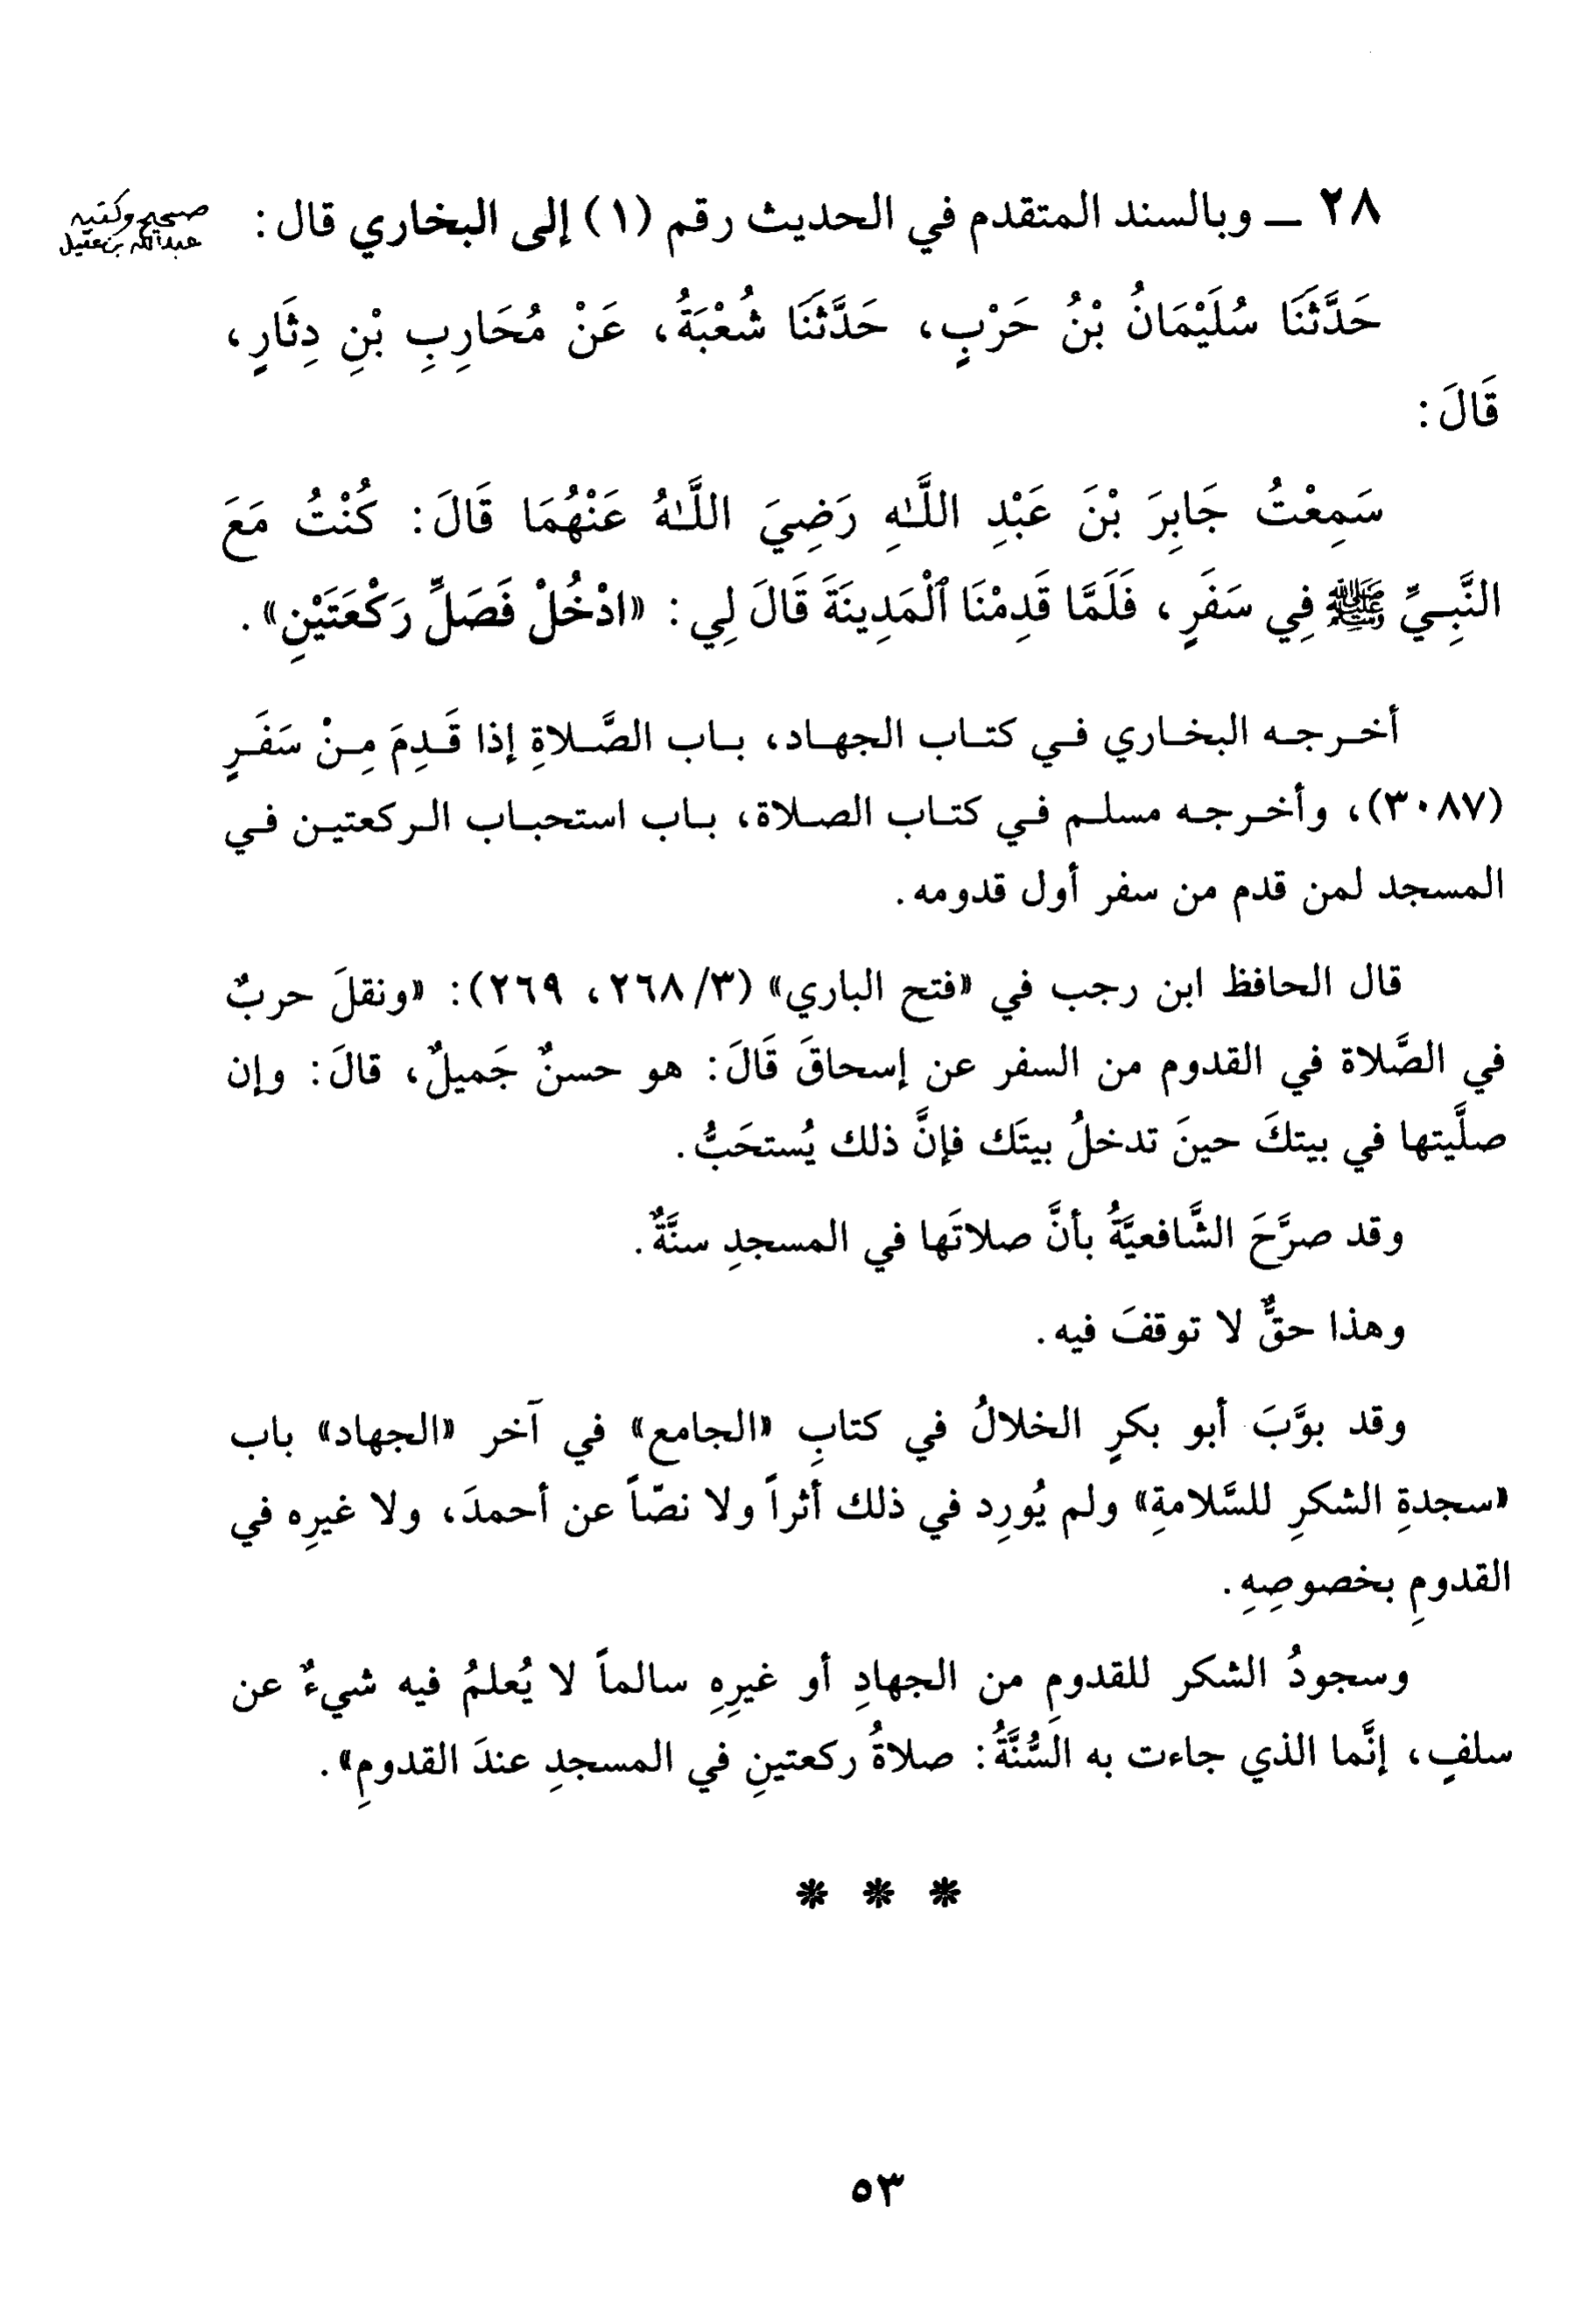 ٢٨ ــ وبالسند المتقدم في الحديث رقم (١) إلى البخاري قال:
صحيح وكتبه
عبد الله بن عقيل
حَدَّثَنَا سُلَيْمَانُ بْنُ حَرْبٍ، حَدَّثَنَا شُعْبَةُ، عَنْ مُحَارِبِ بْنِ دِثَارٍ،
قَالَ:
سَمِعْتُ جَابِرَ بْنَ عَبْدِ اللَّـٰهِ رَضِيَ اللَّـٰهُ عَنْهُمَا قَالَ: كُنْتُ مَعَ
النَّبِيِّ ﷺ فِي سَفَرٍ، فَلَمَّا قَدِمْنَا ٱلْمَدِينَةَ قَالَ لِي: «ادْخُلْ فَصَلِّ رَكْعَتَيْنِ».
أخرجه البخاري في كتاب الجهاد، باب الصَّلاةِ إذا قَدِمَ مِنْ سَفَرٍ
(٣٠٨٧)، وأخرجه مسلم في كتاب الصلاة، باب استحباب الركعتين في
المسجد لمن قدم من سفر أول قدومه.
قال الحافظ ابن رجب في «فتح الباري» (٣/٢٦٨، ٢٦٩): «ونقلَ حربٌ
في الصَّلاة في القدوم من السفر عن إسحاقَ قَالَ: هو حسنٌ جَميلٌ، قالَ: وإن
صلَّيتها في بيتكَ حينَ تدخلُ بيتَك فإنَّ ذلك يُستحَبُّ.
وقد صرَّحَ الشَّافعيَّةُ بأنَّ صلاتَها في المسجدِ سنَّةٌ.
وهذا حقٌّ لا توقفَ فيه.
وقد بوَّبَ أبو بكرٍ الخلالُ في كتابِ «الجامع» في آخر «الجهاد» باب
«سجدةِ الشكرِ للسَّلامةِ» ولم يُورِد في ذلك أثراً ولا نصّاً عن أحمدَ، ولا غيرِه في
القدومِ بخصوصِهِ.
وسجودُ الشكر للقدومِ من الجهادِ أو غيرِهِ سالماً لا يُعلمُ فيه شيءٌ عن
سلفٍ، إنَّما الذي جاءت به السُّنَّةُ: صلاةُ ركعتينِ في المسجدِ عندَ القدومِ».
* * *
٥٣